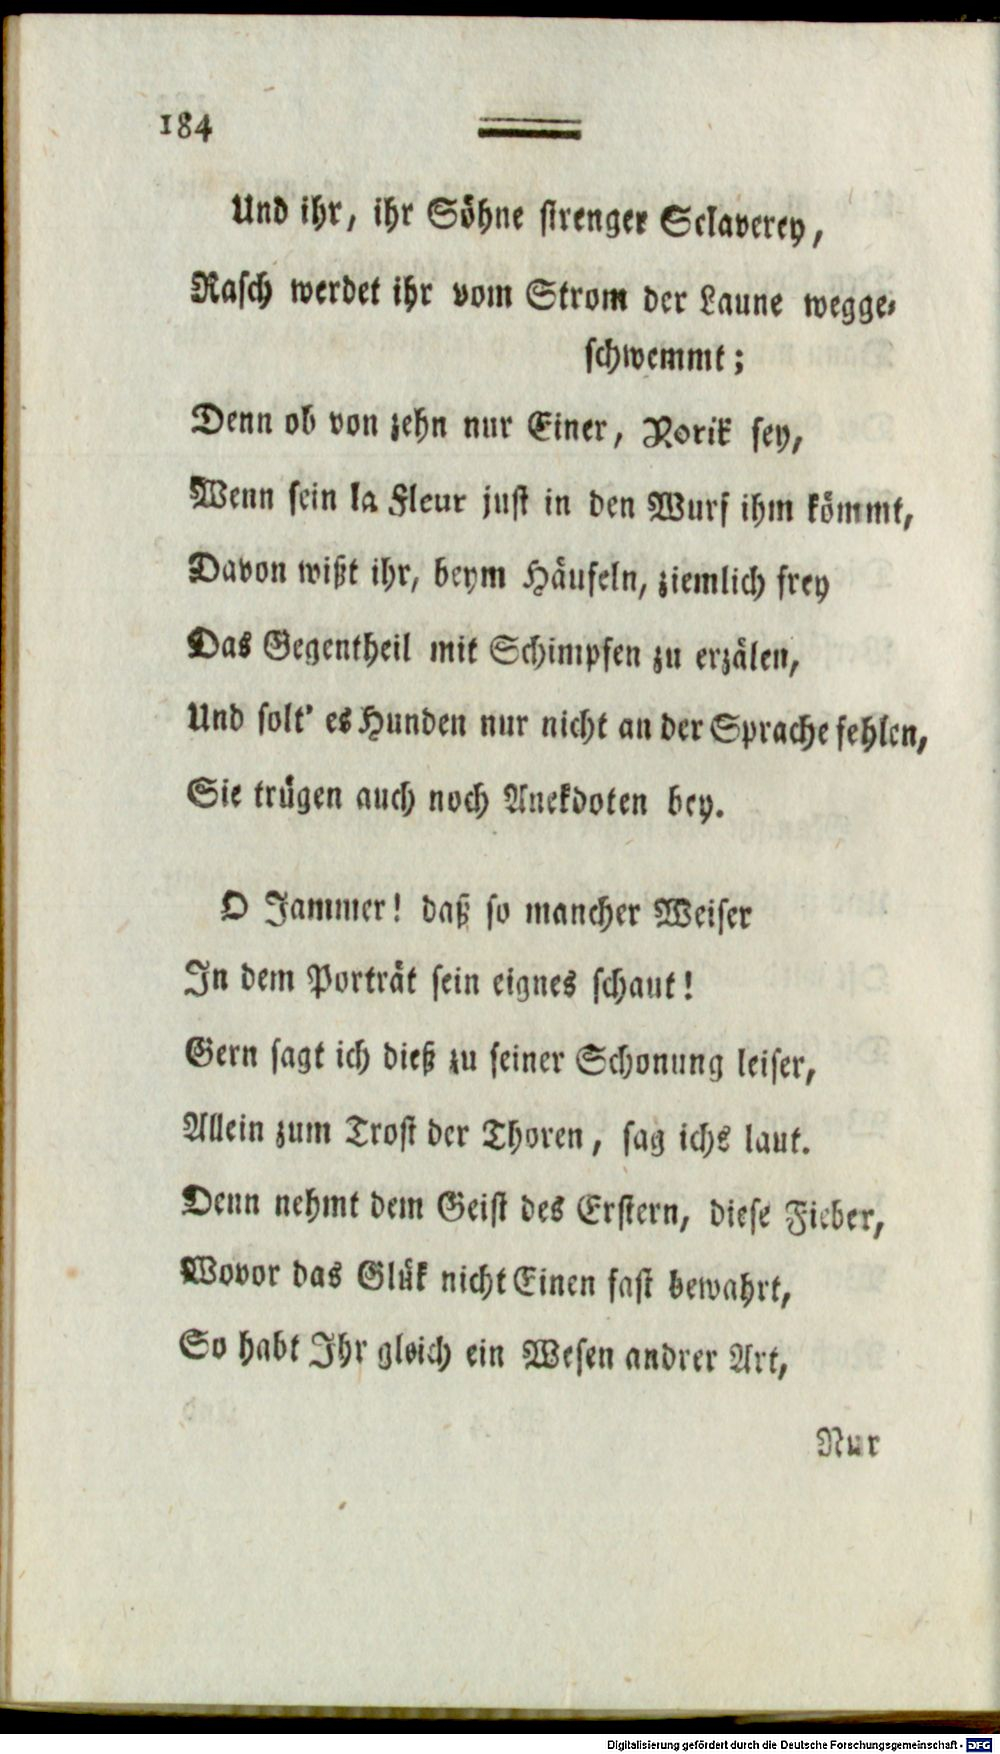 184
Und ihr, ihr Söhne strenger Sclaverey,
Rasch werdet ihr vom Strom der Laune wegge-
schwemmt;
Denn ob von zehn nur Einer, Yorik sey,
Wenn sein la Fleur just in den Wurf ihm kömmt,
Davon wißt ihr, beym Häufeln, ziemlich frey
Das Gegentheil mit Schimpfen zu erzälen,
Und solt' es Hunden nur nicht an der Sprache fehlen,
Sie trügen auch noch Anekdoten bey.
O Jammer! daß so mancher Weiser
In dem Porträt sein eignes schaut!
Gern sagt ich dieß zu seiner Schonung leiser,
Allein zum Trost der Thoren, sag ichs laut.
Denn nehmt dem Geist des Erstern, diese Fieber,
Wovor das Glük nicht Einen fast bewahrt,
So habt Ihr gleich ein Wesen andrer Art,
Nur
Digitalisierung gefördert durch die Deutsche Forschungsgemeinschaft - DFG